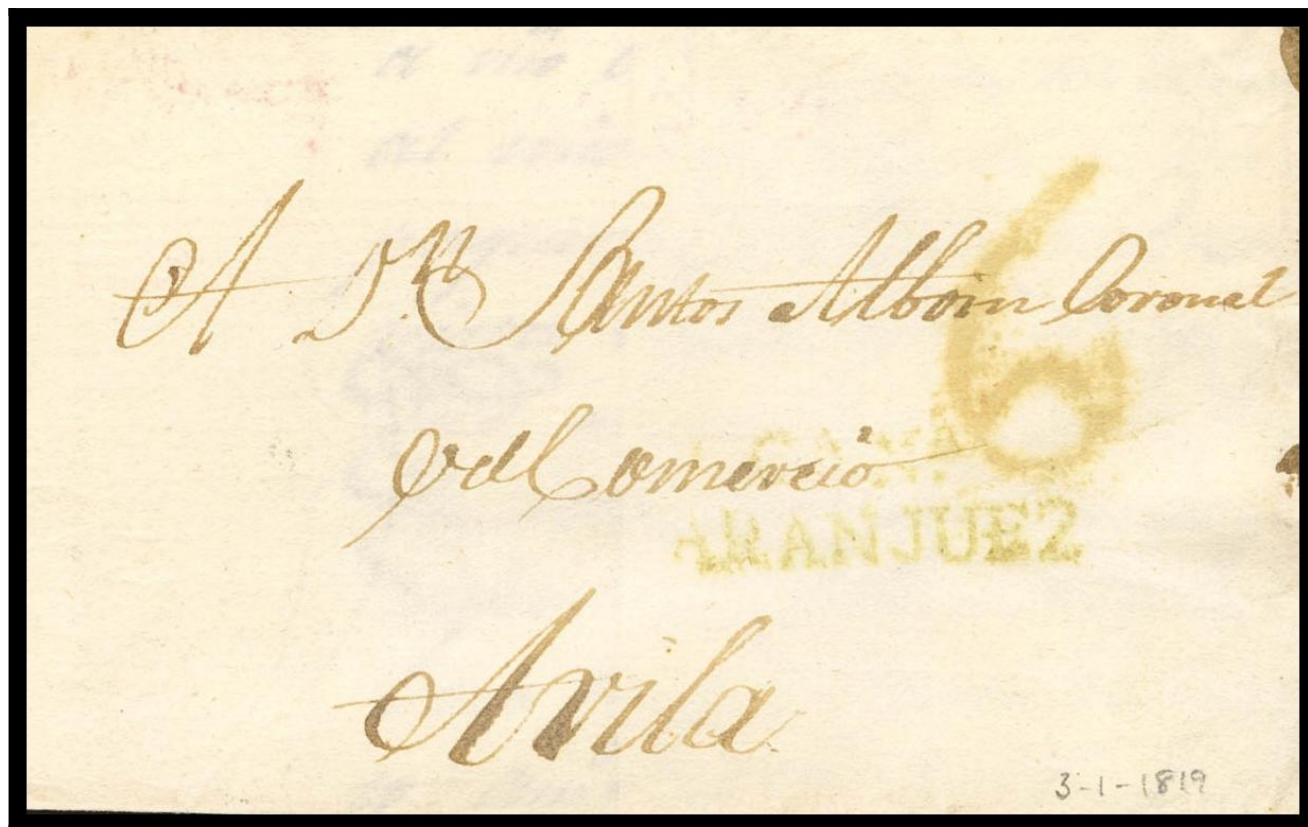 A Dn Santos Alboin Coronel
del Comercio
6
ARANJUEZ
Avila
3-1-1819